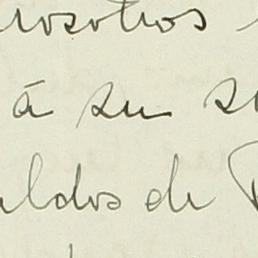 nosotros
á su so
aldos de P